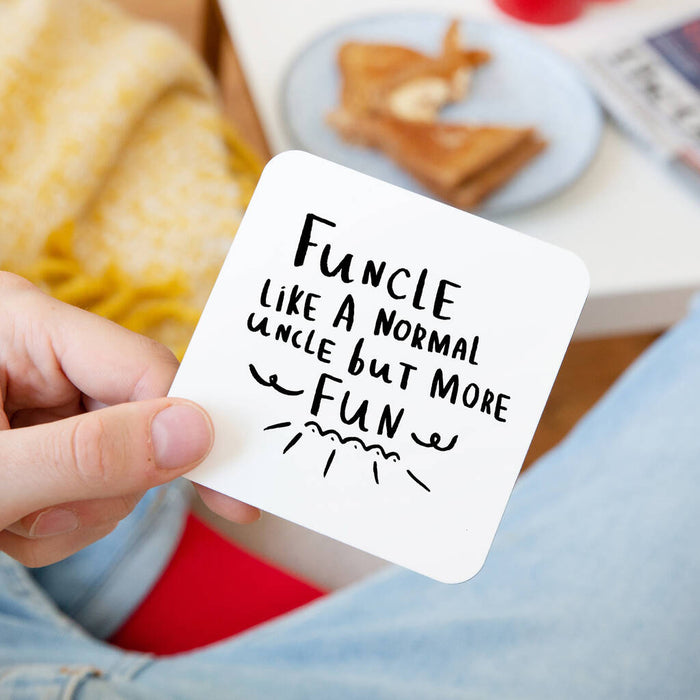 FUNCLE
LIKE A NORMAL
UNCLE but MORE
FUN